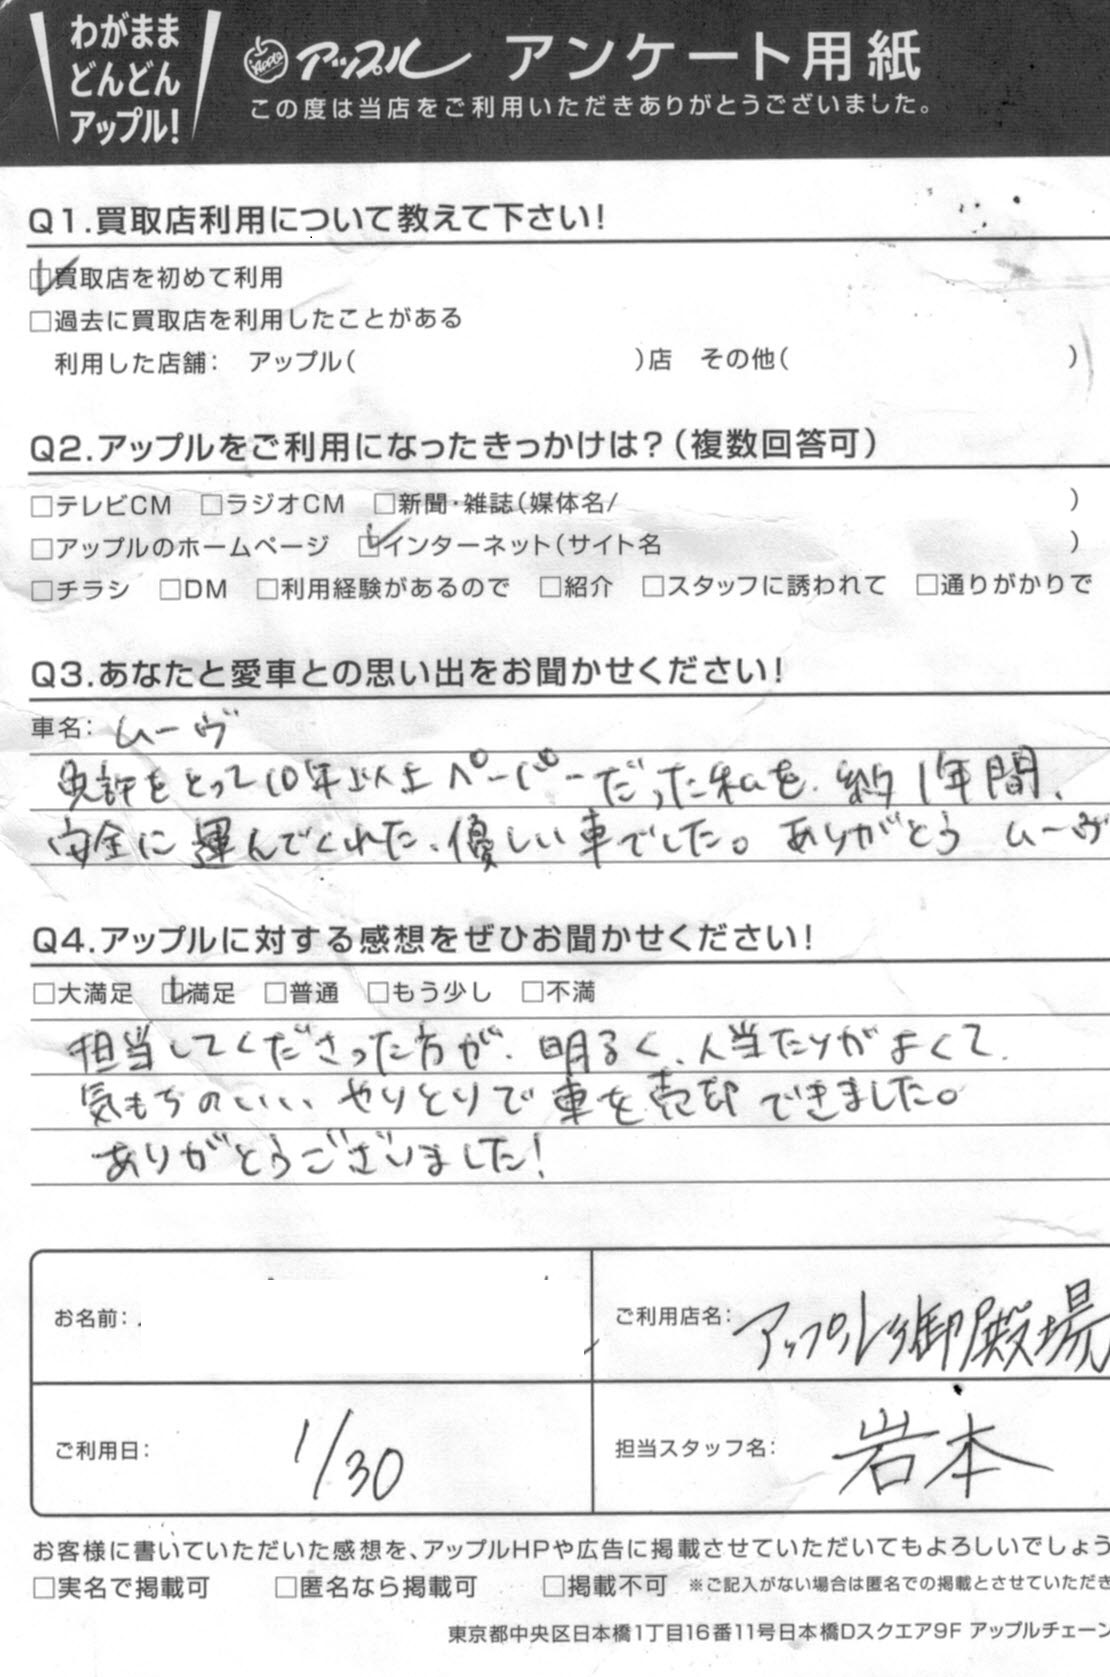 わがまま
どんどん
アップル!
Apple アップル アンケート用紙
この度は当店をご利用いただきありがとうございました。
Q1.買取店利用について教えて下さい!
□買取店を初めて利用
□過去に買取店を利用したことがある
利用した店舗: アップル( )店 その他( )
Q2.アップルをご利用になったきっかけは?(複数回答可)
□テレビCM □ラジオCM □新聞・雑誌(媒体名/ )
□アップルのホームページ □インターネット(サイト名 )
□チラシ □DM □利用経験があるので □紹介 □スタッフに誘われて □通りがかりで
Q3.あなたと愛車との思い出をお聞かせください!
車名: ムーヴ
免許をとって10年以上ペーパーだった私を、約1年間、
安全に運んでくれた、優しい車でした。ありがとう ムーヴ
Q4.アップルに対する感想をぜひお聞かせください!
□大満足 □満足 □普通 □もう少し □不満
担当してくださった方が、明るく、人当たりがよくて、
気もちのいい、やりとりで車を売却できました。
ありがとうございました!
お名前:
ご利用店名: アップル御殿場
ご利用日: 1/30
担当スタッフ名: 岩本
お客様に書いていただいた感想を、アップルHPや広告に掲載させていただいてもよろしいでしょう
□実名で掲載可 □匿名なら掲載可 □掲載不可 ※ご記入がない場合は匿名での掲載とさせていただき
東京都中央区日本橋1丁目16番11号日本橋Dスクエア9F アップルチェーン